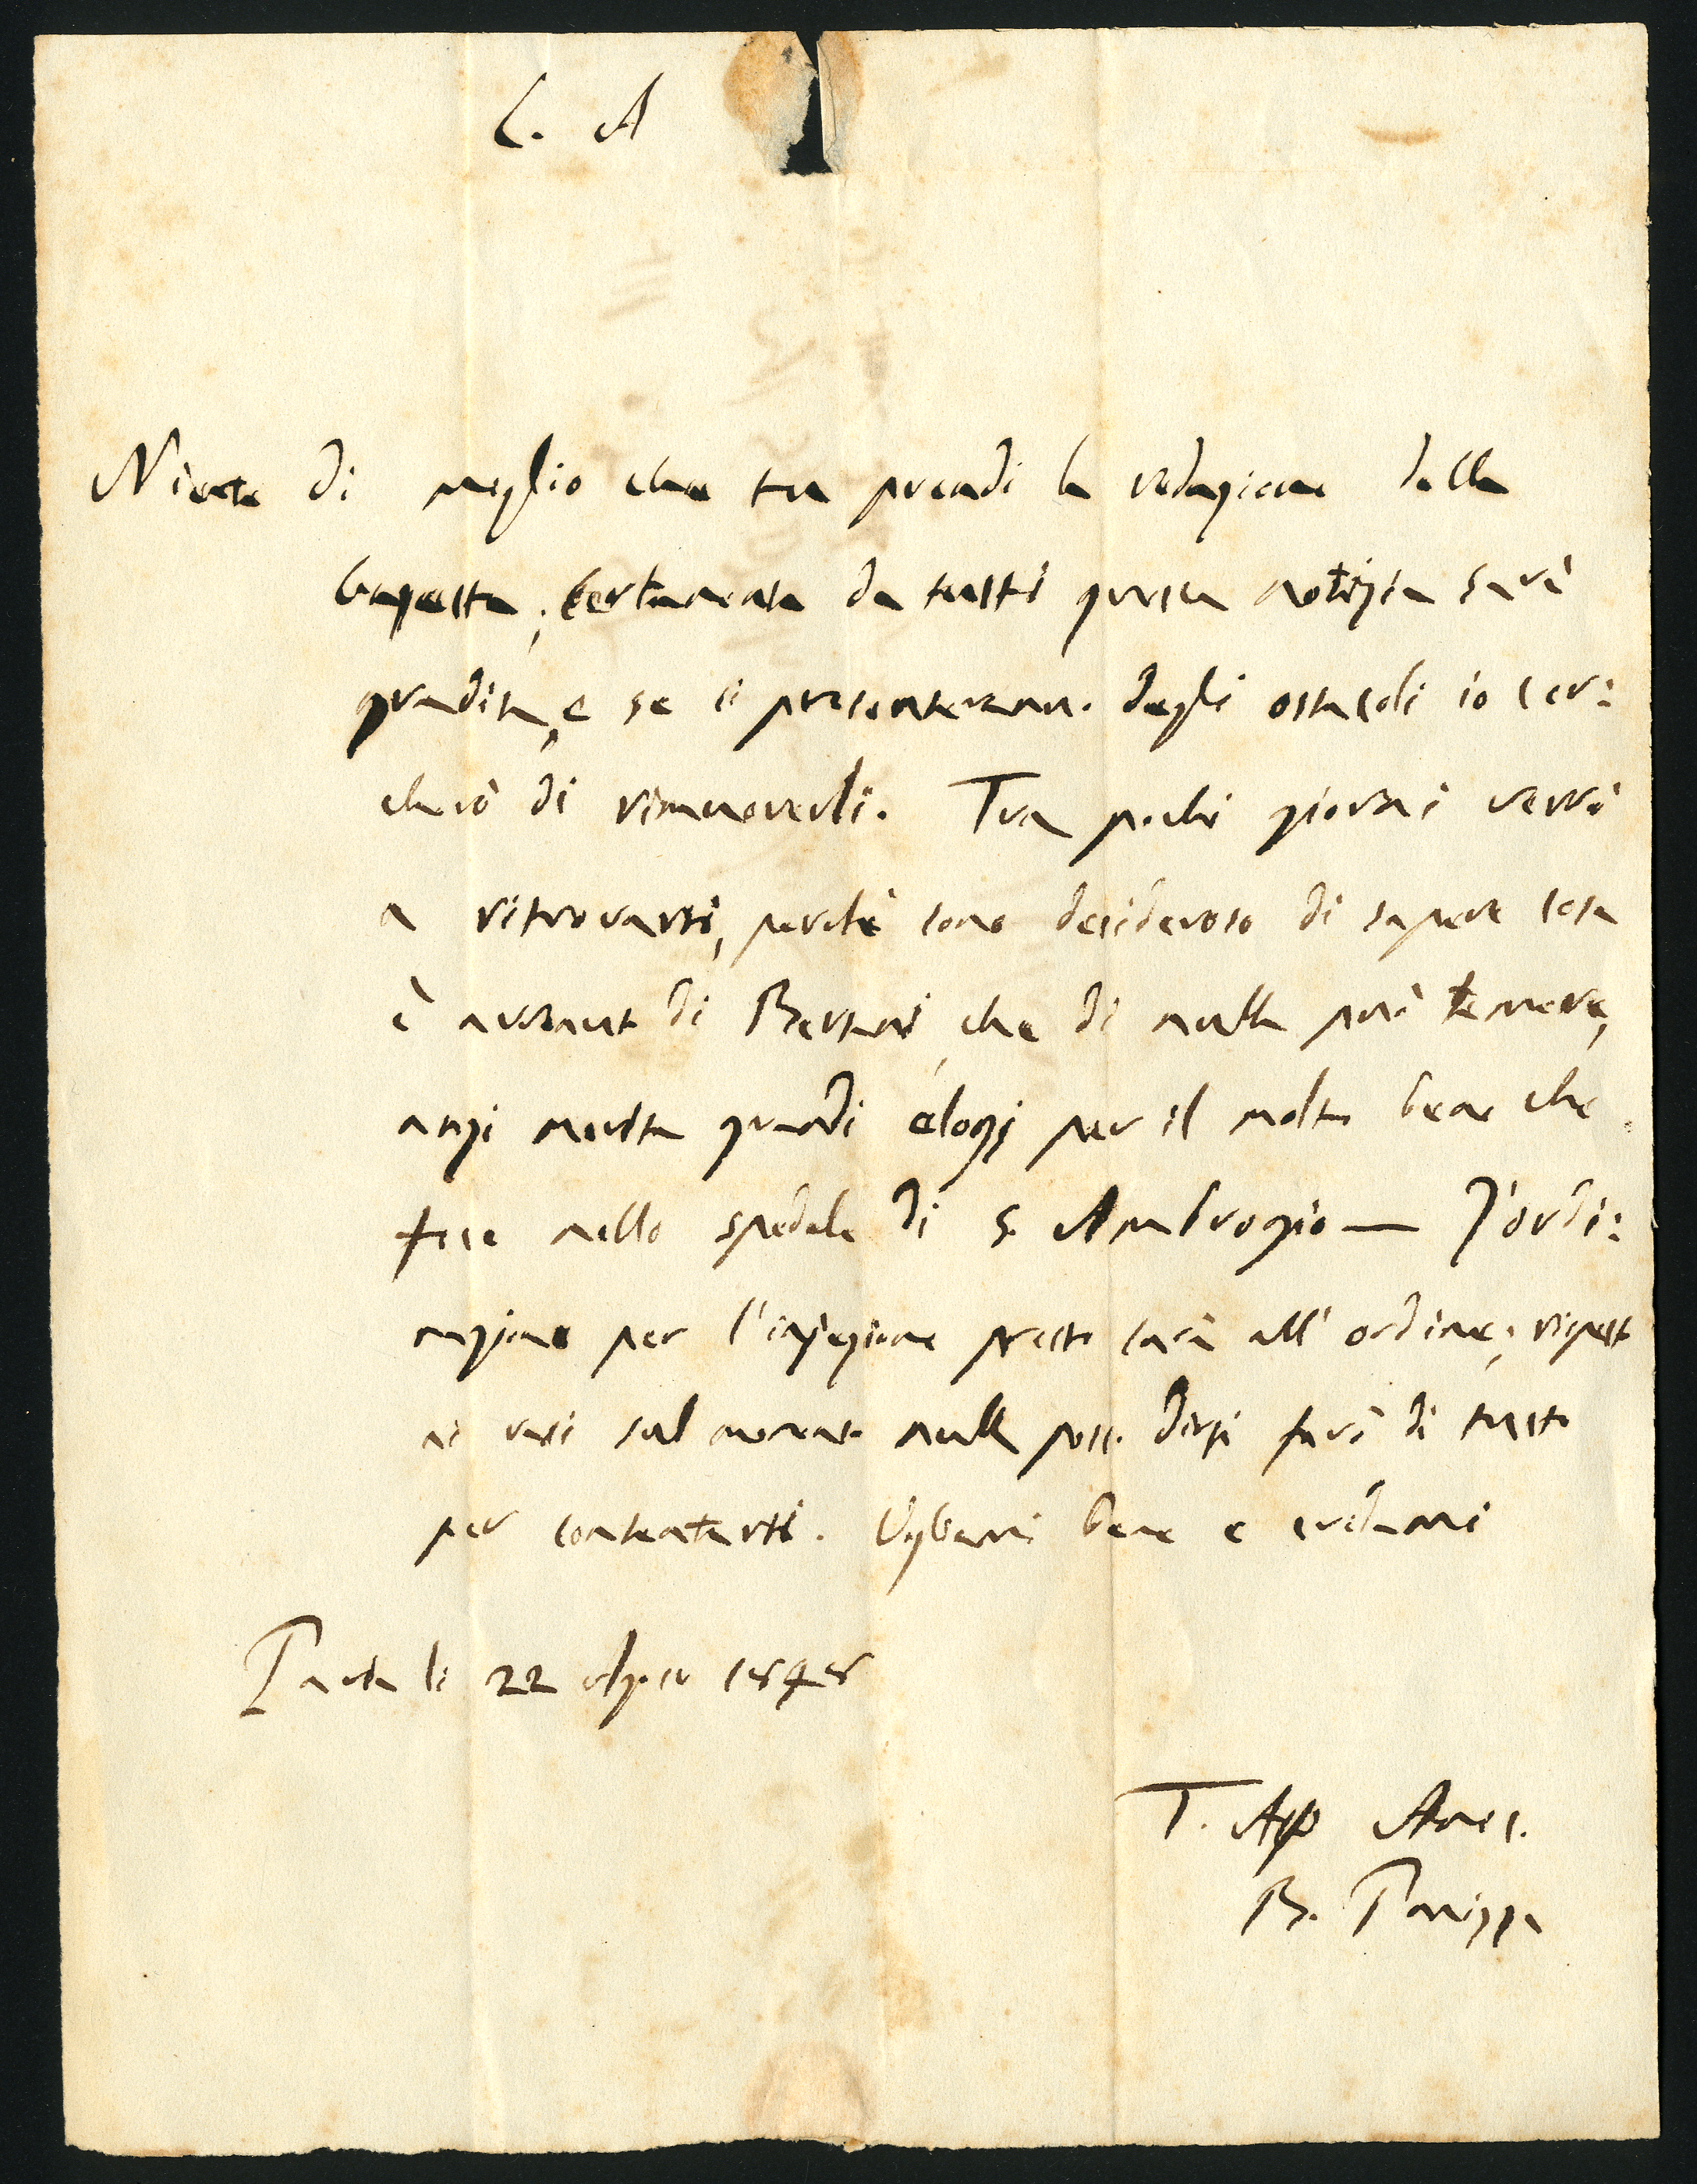 C. A
Niente di meglio che tu prendi la redazione della
Gazzetta; certamente da tutti questa notizia sarà
gradita, e se si presenteranno degli ostacoli io cer:
cherò di rimuoverli. Tra pochi giorni verrò
a ritrovarti, perchè sono desideroso di sapere cosa
è avvenuto di Bertani, che di nulla può temere,
anzi merita grandi elogj per il molto bene che
fece nello spedale di S. Ambrogio — L'ordi:
nazione per l'injezione presto sarà all'ordine; rispetto
ai vasi sul momento nulla posso dirti farò di tutto
per contentarti. Vogliami bene e credimi
Pavia li 22 1848
T. Aff Amic.
B. Panizza